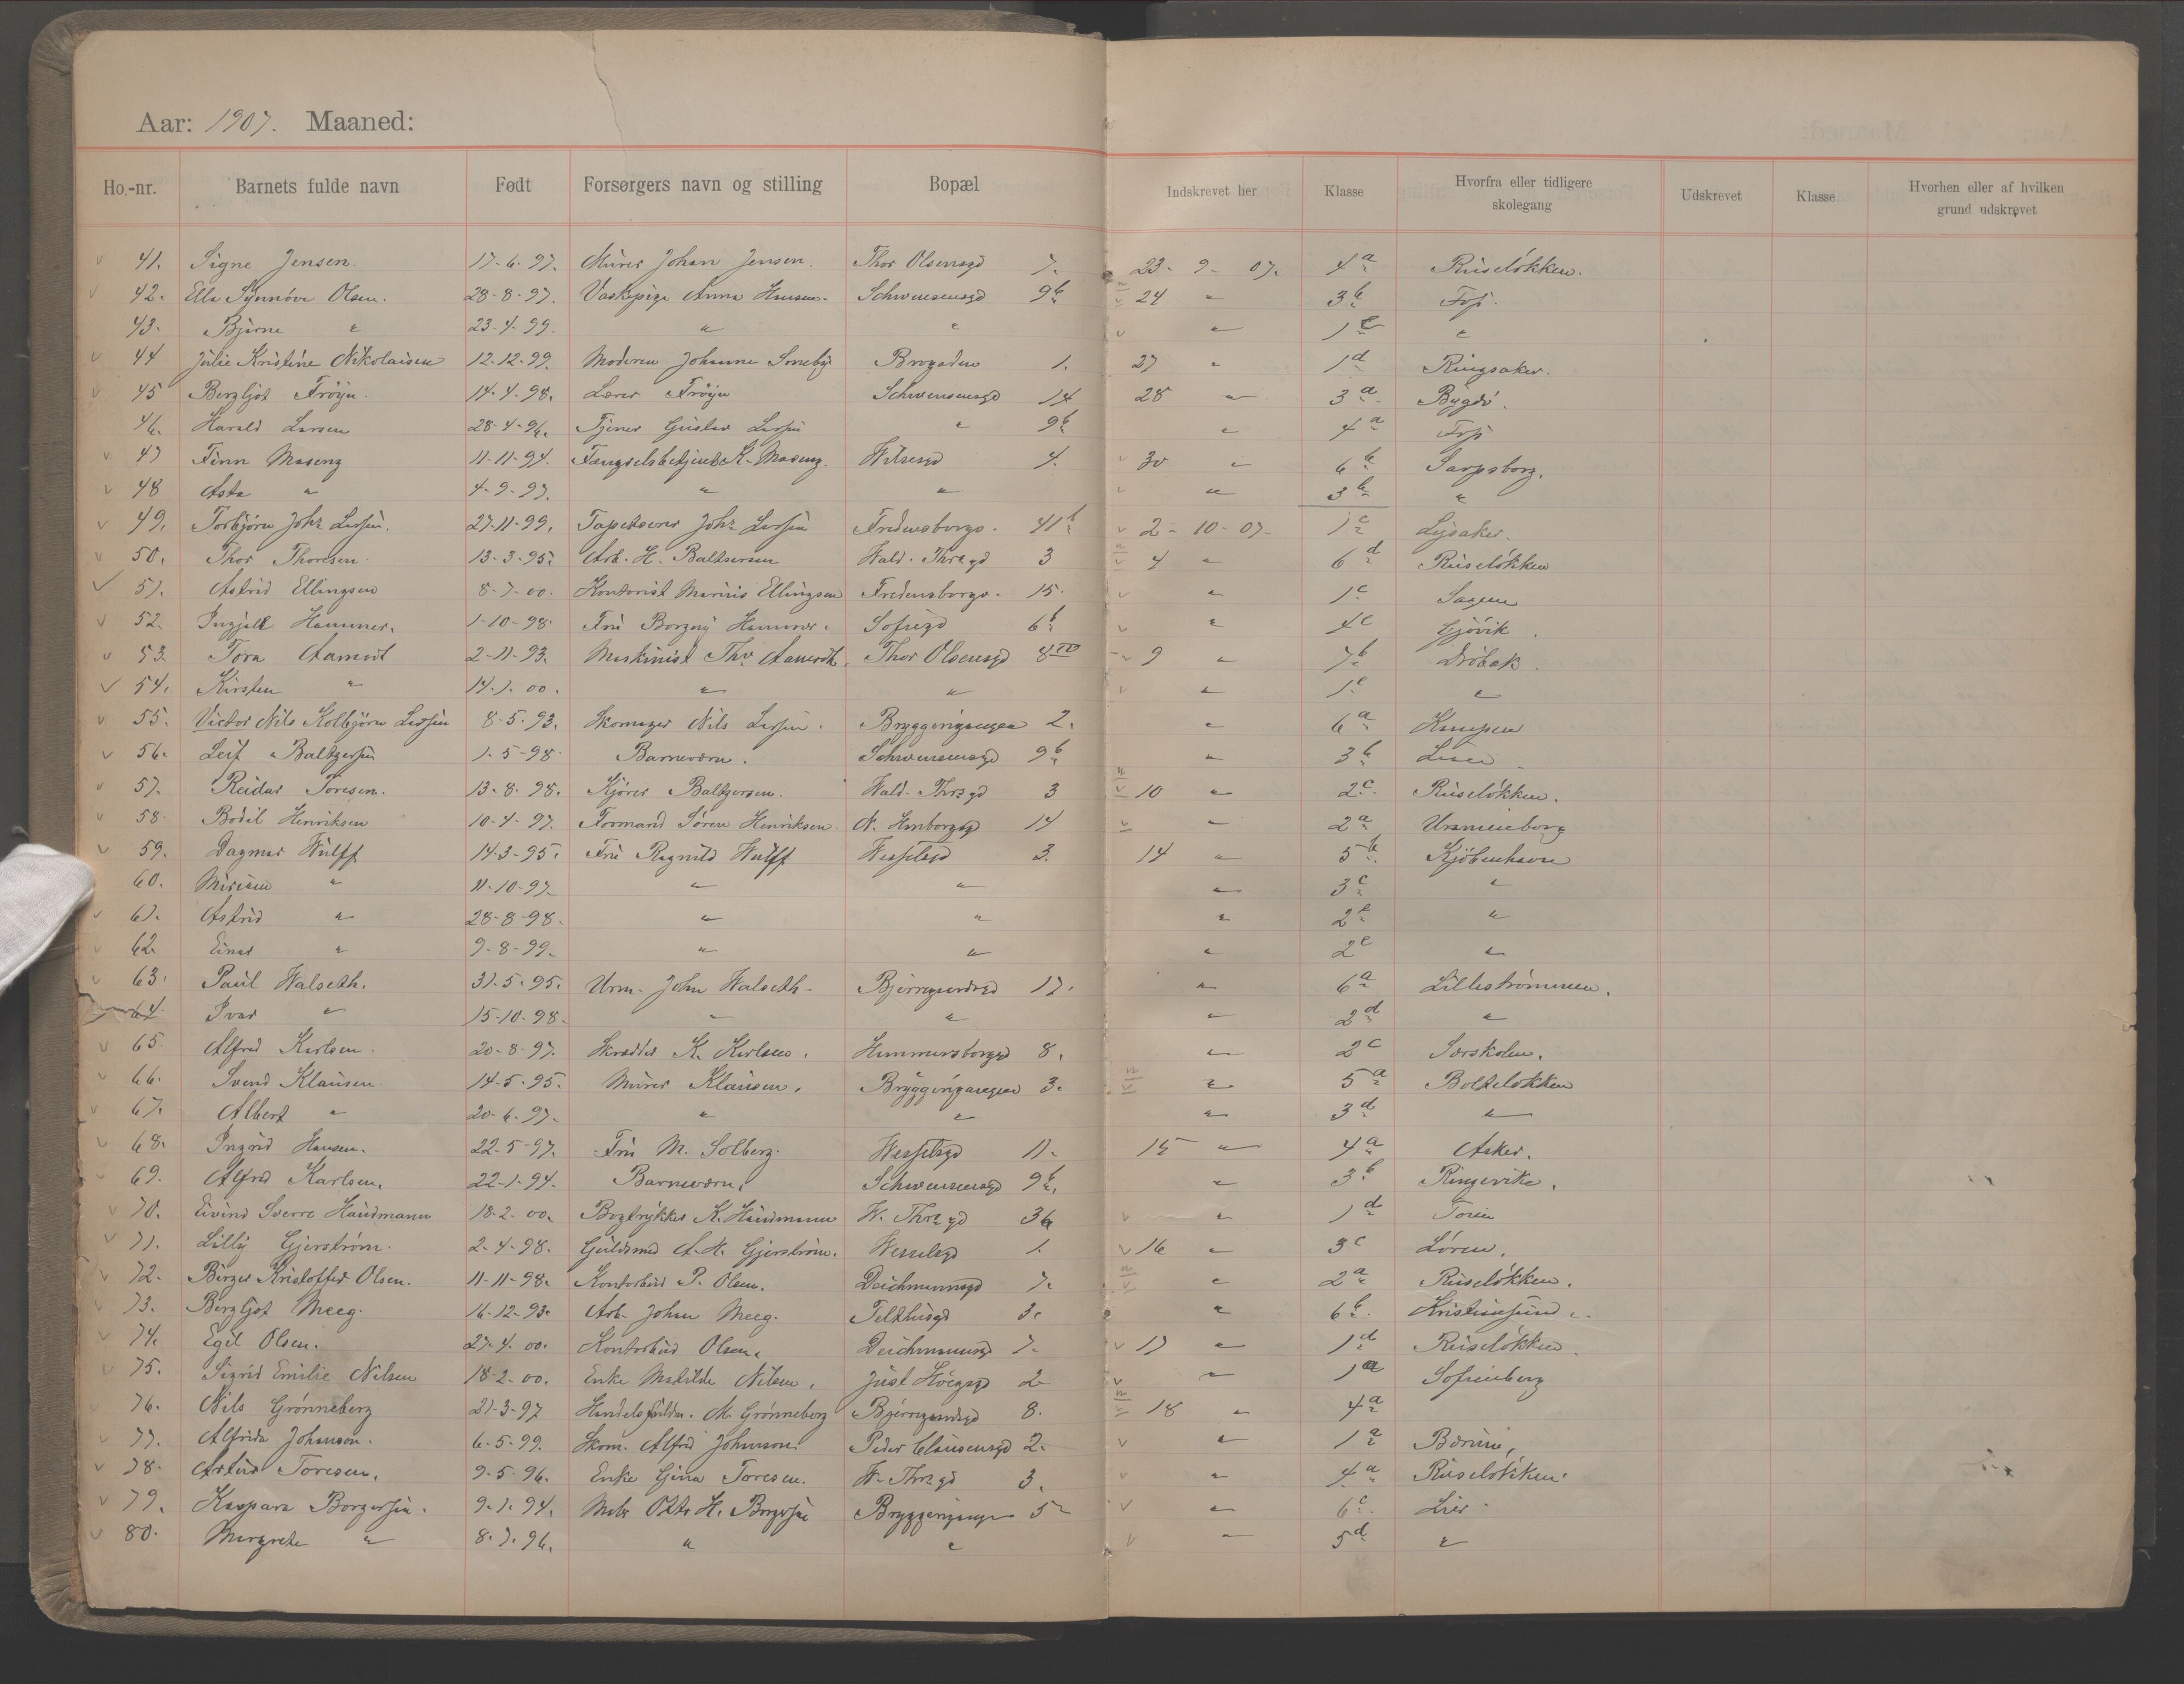 Aar: 1907. Maaned:
Ho.-nr. Barnets fulde navn Født Forsørgers navn og stilling Bopæl Indskrevet her Klasse Hvorfra eller tidligere skolegang Udskrevet Klasse Hvorhen eller af hvilken grund udskrevet
v 41. Signe Jensen. 17-6-97. Murer Johan Jensen. Thor Olsensgd 7. 23-9-07. 4a Ruseløkken.
v 42. Ella Synnöve Olsen. 28-8-97. Vaskepige Anna Hansen. Schwensensgd 9b v 24 " 3b
43. Bjarne " 23-4-99. " " v " 1e "
v 44 Julie Kristine Nikolaisen 12-12-99. Moderen Johanne Brogaden 1. 27 " 1d Ringsaker.
v 45 Bergljot Fröyn. 14-4-98. Lærer Fröyn Schwensensgd 14 28 " 3a Bygdö.
46. Harald Larsen 28-4-96. Tjener Gustav Larsen " 9b " 4a
v 47 Finn Maseng 11-11-94. Fængselsbetjent K. Maseng. Wilsesgd 4. v 30 " 6b Sarpsborg.
v 48 Asta " 4-9-97. " " v " 3b "
v 49. Torbjörn Johs Larsen. 27-11-99. Tapetserer Johs Larsen Fredensborgv. 41b v 2-10-07. 1c Lysaker.
v 50. Thor Thoresen. 13-3-95. Arb. H. Baltsersen Wald. Thrsgd 3 v 4 " 6d Ruseløkken
v 51. Astrid Ellingsen 8-7-00. Kontorist Marius Ellingsen Fredensborgv. 15. v " 1c Sagene
v 52. Ingjald Hammer. 1-10-98. Fru Borgny Hammer. Sofiegd 6b v " 4c Gjövik.
v 53. Tora Aamodt 2-11-93. Maskinist Thv Aamodt. Thor Olsensgd 8IV v 9 " 7b Dröbak.
v 54. Kirsten " 14-1-00. " " v " 1c "
v 55. Victor Nils Kolbjörn Larsen 8-5-93. Skomager Nils Larsen. Bryggerigangen 2. " 6a Kampen
v 56. Leif Baltzersen 1-5-98. Barneværn. Schwensensgd 9b " 3b
v 57. Reidar Toresen. 13-8-98. Kjörer Baltzersen. Wald. Thrsgd 3 v 10 " 2c. Ruseløkken.
v 58. Bodil Henriksen 10-4-97. Formand Sören Henriksen N. 14 v " 2a Uranienborg
v 59. Dagmar Wulff 14-3-95. Fru Ragnild Wulff Wesselsgd 3. 14 " 5b Kjöbenhavn
60. Miriam " 11-10-97. " " " 3c "
v 61. Astrid " 28-8-98. " " " 2e "
v 62. Einar " 9-8-99. " " " 2e "
v 63. Paul Walseth. 31-5-95. Urm. John Walseth. Bjerregaardsgd 17. " 6a Lilleströmmen.
64. Ivar " 15-10-98. " " " 2d "
v 65 Alfred Karlsen. 20-8-97. Skrædder K. Karlsen. Hammersborggd 8. " 2c Særskolen.
v 66. Svend Klausen. 14-5-95. Murer Klausen. Bryggerigangen 3. v " 5a Bolteløkken
v 67. Albert " 20-6-97. " " " 3d "
v 68. Ingrid Hansen. 22-5-97. Fru M. Solberg. Wesselsgd 11. 15 " 4a Asker.
69. Alfred Karlsen. 22-1-94. Barneværn. Schwensensgd 9b. " 3b Ringerike.
v 70. Eivind Sverre Haudmann 18-2-00. Bogtrykker K. Haudmann W. Thrsgd 36 v " 1d
v 71. Lilly Gjerström. 2-4-98. Guldsmed A. H. Gjerström. Wesselsgd 1. v 16 " 3c Lören.
v 72. Birger Kristoffer Olsen. 11-11-98. Kontorbud P. Olsen. Deichmannsgd 7. v " 2a Ruseløkken.
v 73. Bergljot Meeg. 16-12-93. Arb. Johan Meeg. Telthusgd 3. " 6b. Kristiansund.
v 74. Egil Olsen. 27-4-00. Kontorbud Olsen. Deichmannsgd 7. v 17 " 1d Ruseløkken.
v 75. Sigrid Emilie Nilsen 18-2-00. Enke Mathilde Nilsen. Just Höegsgd 2 v " 1a Sofienberg
76. Nils Grønneberg 21-3-97 M. Grønneberg Bjerregaardsgd 8. v 18 " 4a
v 77. Alfrida Johanson. 6-5-99. Skom. Alfred Johanson. Peder Clausensgd 2. v " 1a Bærum,
v 78. Artur Toresen. 9-5-96. Enke Gina Toresen. W. Thrsgd 3. v " 4a Ruseløkken.
v 79. Kaspara Borgersen. 9-1-94. Otto H. Borgersen Bryggerigangen 5 v " 6c. Lier
v 80. Margrete " 8-7-96. " " v " 5d "